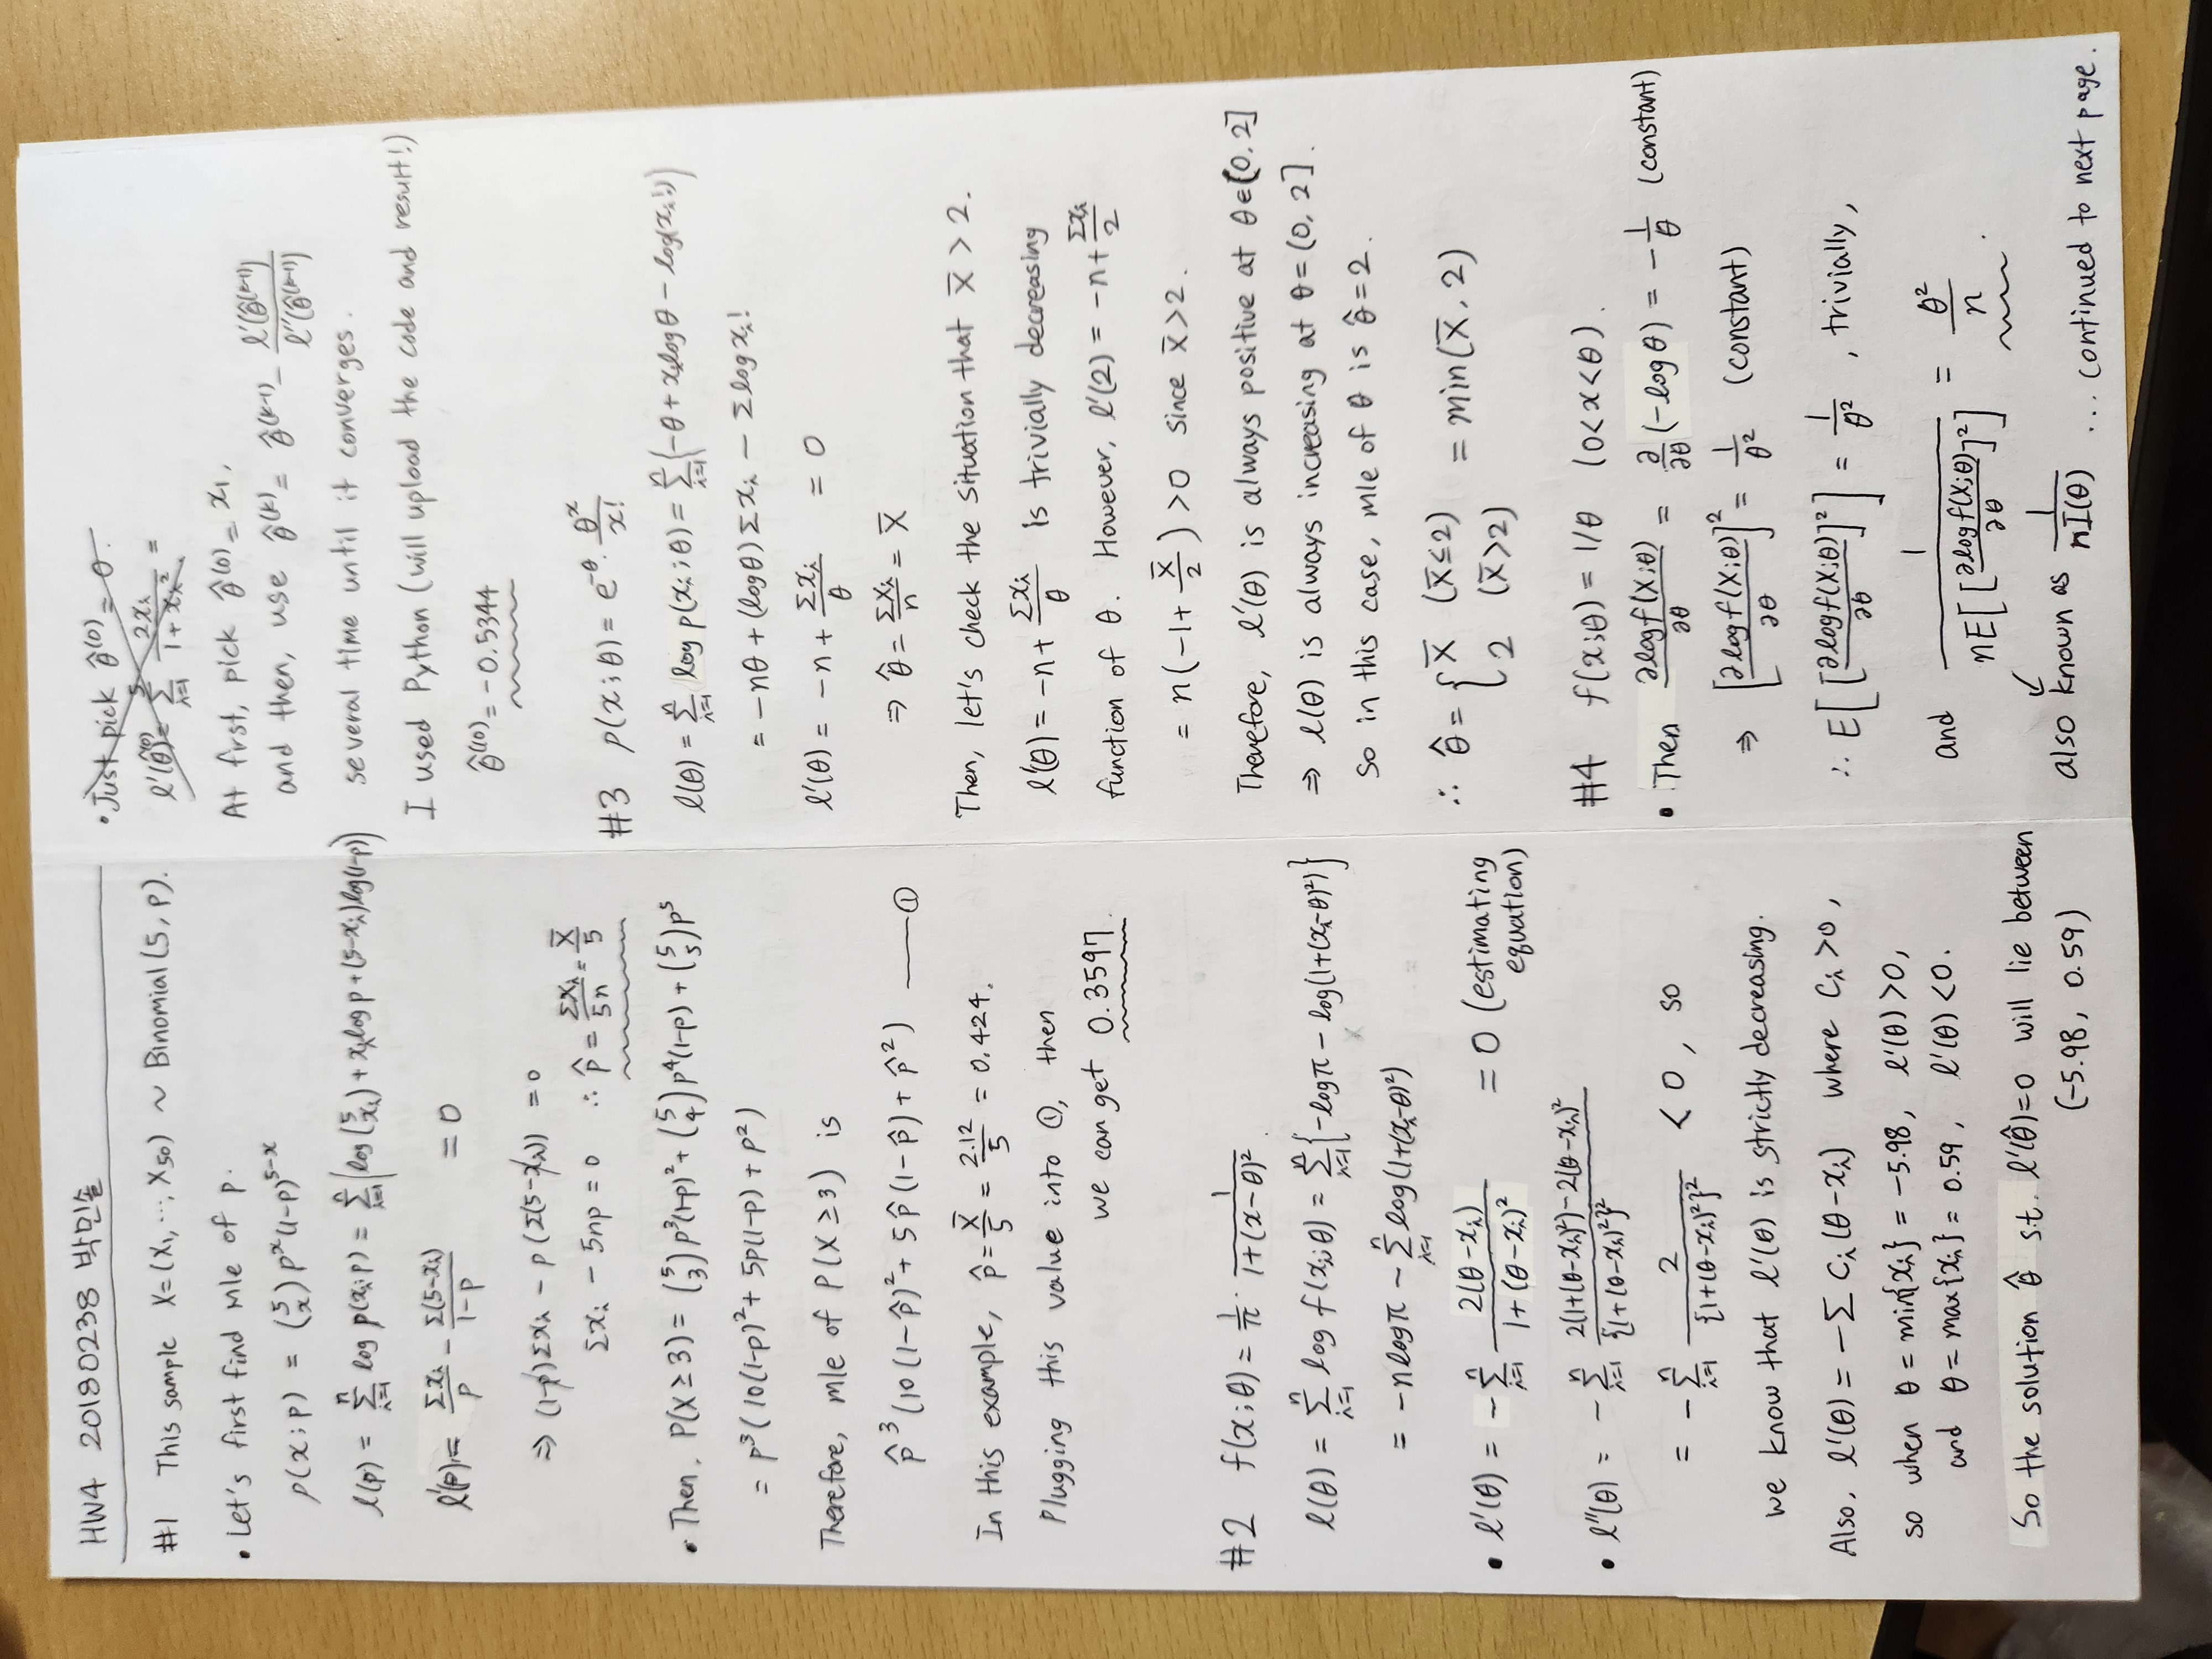 HW4 20180238 박민솔
#1 This sample X=(X₁, ⋯, X₅₀) ~ Binomial(5, p).
• Let's first find mle of p.
p(x;p) = (5 x) pˣ(1-p)⁵⁻ˣ
l(p) = Σᵢ₌₁ⁿ log p(xᵢ;p) = Σᵢ₌₁ⁿ (log(5 xᵢ) + xᵢlog p + (5-xᵢ)log(1-p))
l'(p) = Σxᵢ/p - Σ(5-xᵢ)/(1-p) = 0
⇒ (1-p)Σxᵢ - p(Σ(5-xᵢ)) = 0
Σxᵢ - 5np = 0 ∴ p̂ = Σxᵢ/5n = X̄/5
• Then, P(X≥3) = (5 3)p³(1-p)² + (5 4)p⁴(1-p) + (5 5)p⁵
= p³(10(1-p)² + 5p(1-p) + p²)
Therefore, mle of P(X≥3) is
p̂³(10(1-p̂)² + 5p̂(1-p̂) + p̂²) —— ①
In this example, p̂ = X̄/5 = 2.12/5 = 0.424.
Plugging this value into ①, then
we can get 0.3597.
#2 f(x;θ) = 1/π · 1/(1+(x-θ)²)
l(θ) = Σᵢ₌₁ⁿ log f(xᵢ;θ) = Σᵢ₌₁ⁿ {-logπ - log(1+(xᵢ-θ)²)}
= -nlogπ - Σᵢ₌₁ⁿ log(1+(xᵢ-θ)²)
• l'(θ) = -Σᵢ₌₁ⁿ 2(θ-xᵢ)/(1+(θ-xᵢ)²) = 0 (estimating equation)
• l''(θ) = -Σᵢ₌₁ⁿ (2(1+(θ-xᵢ)²)-2(θ-xᵢ)²)/{1+(θ-xᵢ)²}²
= -Σᵢ₌₁ⁿ 2/{1+(θ-xᵢ)²}² < 0, so
we know that l'(θ) is strictly decreasing.
Also, l'(θ) = -Σ cᵢ(θ-xᵢ) where cᵢ>0,
so when θ = min{xᵢ} = -5.98, l'(θ)>0,
and θ = max{xᵢ} = 0.59, l'(θ)<0.
So the solution θ̂ s.t. l'(θ̂)=0 will lie between
(-5.98, 0.59)
• Just pick θ̂⁽⁰⁾ = 0.
l'(θ̂⁽⁰⁾) = Σᵢ₌₁⁵ 2xᵢ/(1+xᵢ²) =
At first, pick θ̂⁽⁰⁾ = x₁,
and then, use θ̂⁽ᵏ⁾ = θ̂⁽ᵏ⁻¹⁾ - l'(θ̂⁽ᵏ⁻¹⁾)/l''(θ̂⁽ᵏ⁻¹⁾)
several time until it converges.
I used Python (will upload the code and result!)
θ̂⁽¹⁰⁾ = -0.5344
#3 p(x;θ) = e⁻ᶿ · θˣ/x!
l(θ) = Σᵢ₌₁ⁿ log p(xᵢ;θ) = Σᵢ₌₁ⁿ (-θ + xᵢlogθ - log(xᵢ!))
= -nθ + (logθ)Σxᵢ - Σlog xᵢ!
l'(θ) = -n + Σxᵢ/θ = 0
⇒ θ̂ = Σxᵢ/n = X̄
Then, let's check the situation that X̄ > 2.
l'(θ) = -n + Σxᵢ/θ is trivially decreasing
function of θ. However, l'(2) = -n + Σxᵢ/2
= n(-1 + X̄/2) > 0 since X̄>2.
Therefore, l'(θ) is always positive at θ∈(0, 2]
⇒ l(θ) is always increasing at θ=(0, 2].
So in this case, mle of θ is θ̂=2.
∴ θ̂ = { X̄ (X̄≤2)
2 (X̄>2) = min(X̄, 2)
#4 f(x;θ) = 1/θ (0<x<θ).
• Then ∂logf(X;θ)/∂θ = ∂/∂θ(-logθ) = -1/θ (constant)
⇒ [∂logf(X;θ)/∂θ]² = 1/θ² (constant)
∴ E[[∂logf(X;θ)/∂θ]²] = 1/θ², trivially,
and 1/(nE[[∂logf(X;θ)/∂θ]²]) = θ²/n.
↙ also known as 1/nI(θ) ... continued to next page.